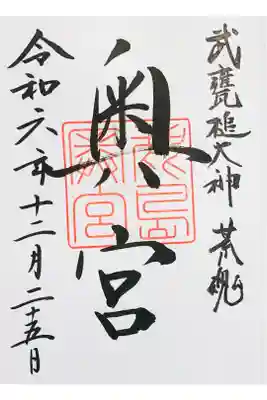 武甕槌大神 荒魂
奥宮
鹿島奥宮
令和六年十二月二十五日